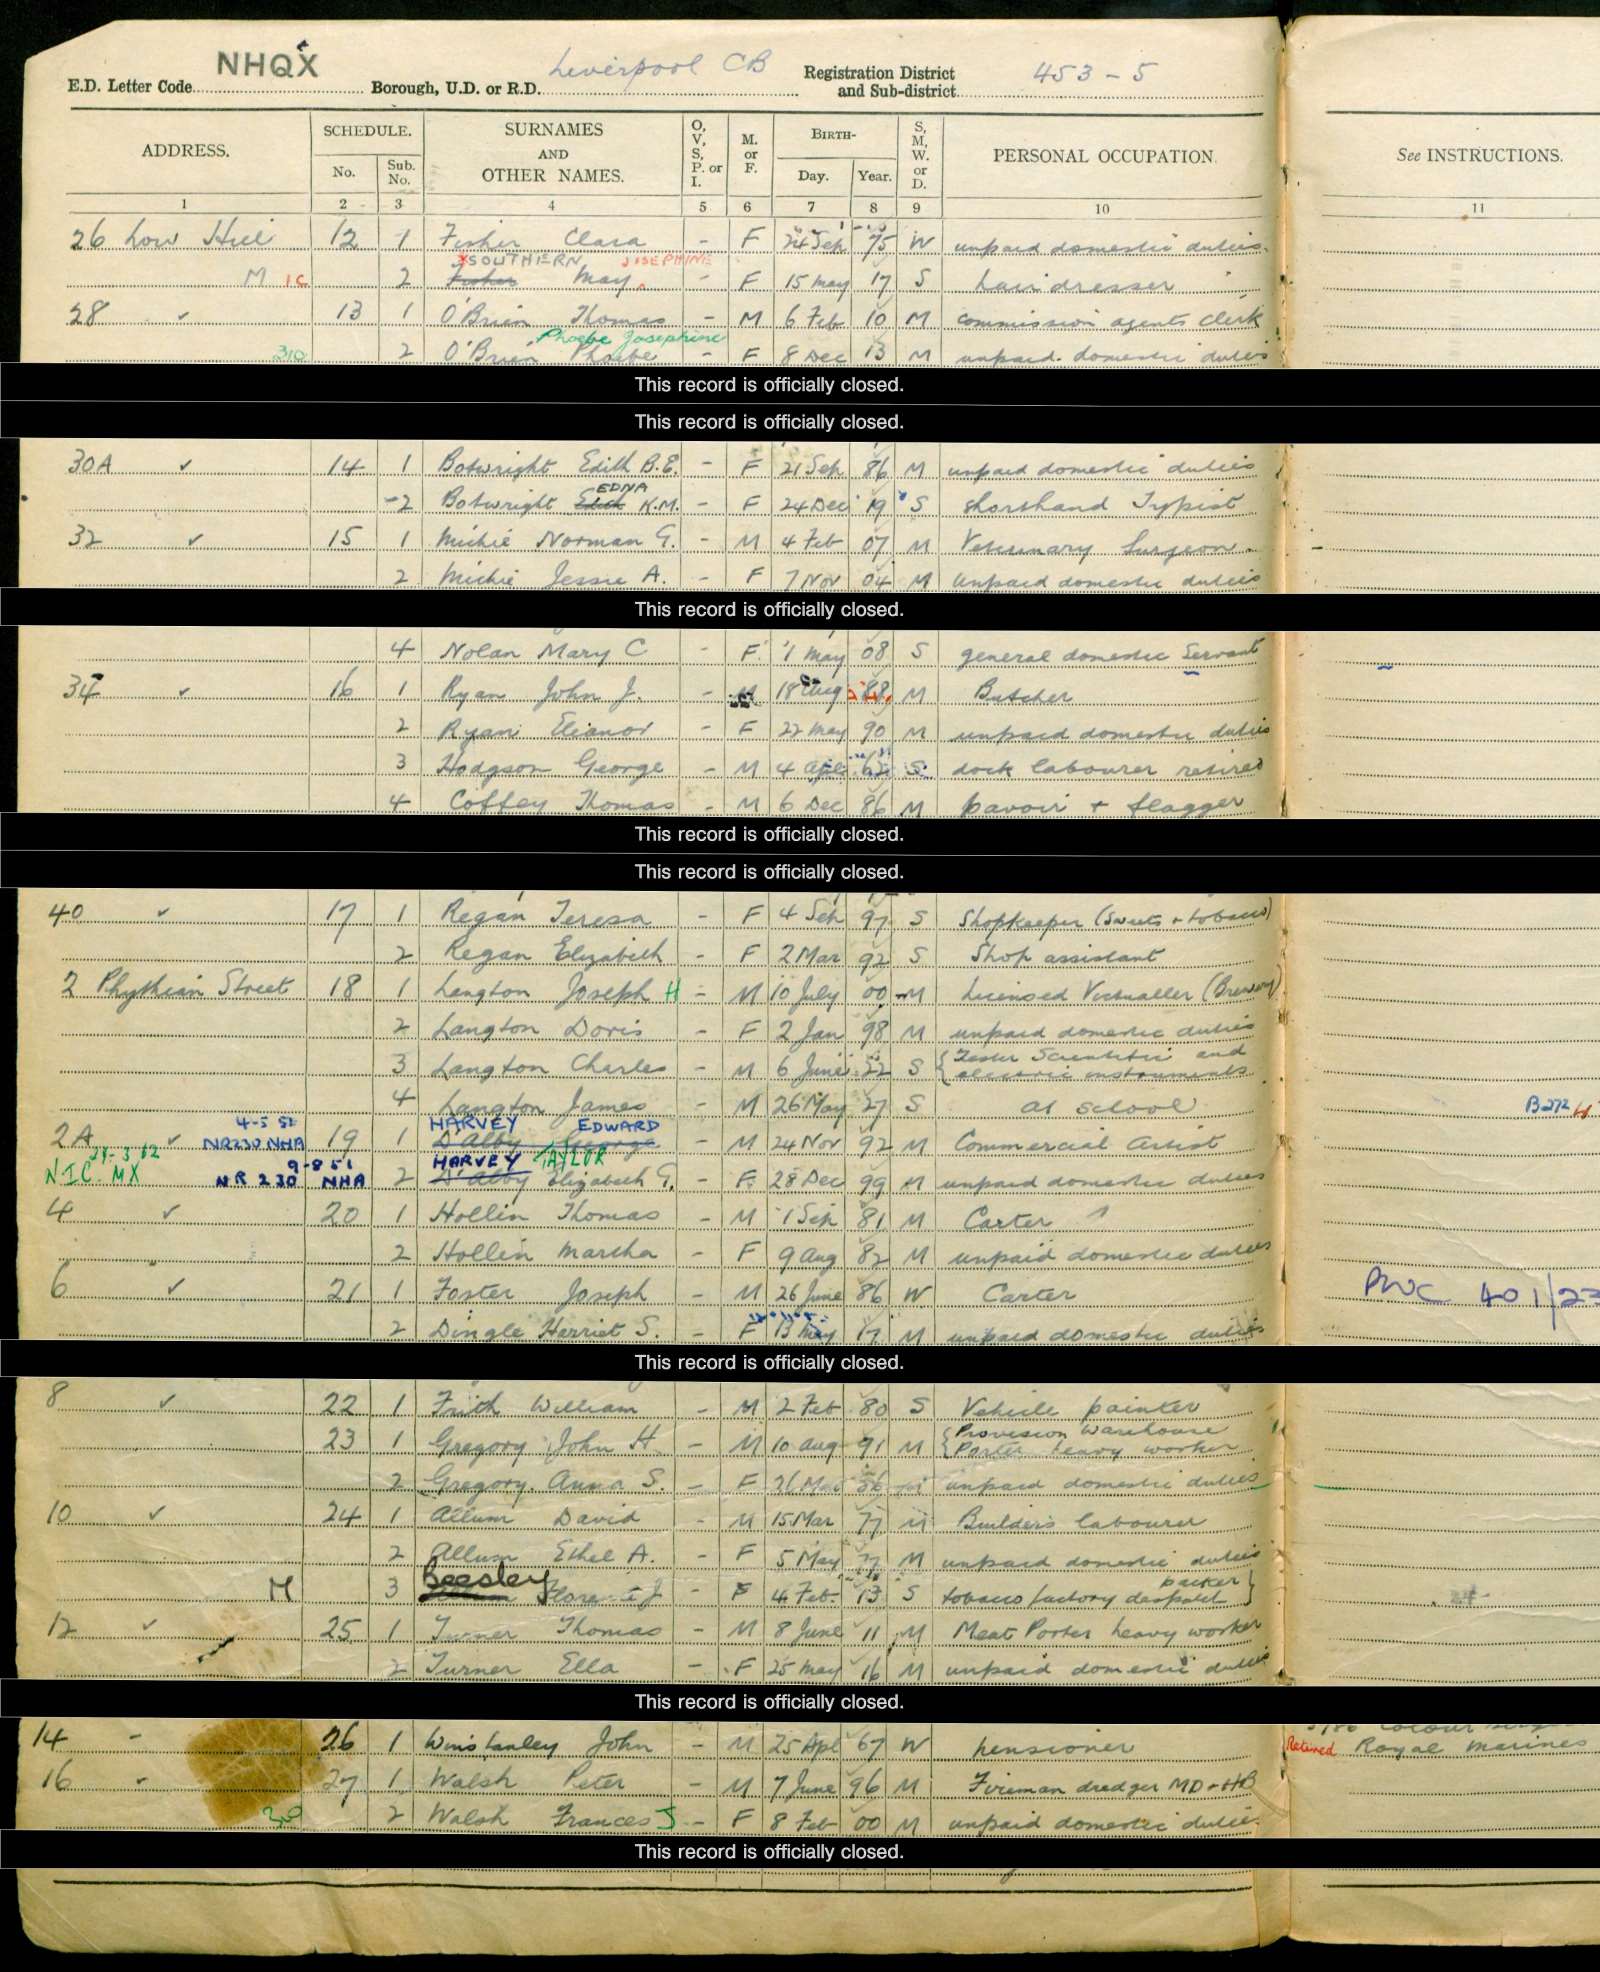 NHQX
E.D. Letter Code Borough, U.D. or R.D. Liverpool CB Registration District and Sub-district 453-5
ADDRESS. SCHEDULE. No. Sub. No. SURNAMES AND OTHER NAMES. O, V, S, P. or I. M. or F. BIRTH- Day. Year. S, M, W. or D. PERSONAL OCCUPATION. See INSTRUCTIONS.
1 2 3 4 5 6 7 8 9 10 11
26 Low Hill 12 1 Fisher Clara - F 24 Sep 75 W unpaid domestic duties
SOUTHERN JOSEPHINE
M IC 2 Fisher May - F 15 May 17 S hairdresser
28 13 1 O'Brien Thomas - M 6 Feb 10 M commission agents clerk
Phoebe Josephine
310 2 O'Brien Phoebe - F 8 Dec 13 M unpaid domestic duties
This record is officially closed.
This record is officially closed.
30A 14 1 Botwright Edith B.E. - F 21 Sep 86 M unpaid domestic duties
EDNA
2 Botwright Edith K.M. - F 24 Dec 19 S Shorthand Typist
32 15 1 Michie Norman G. - M 4 Feb 07 M Veterinary Surgeon
2 Michie Jessie A. - F 7 Nov 04 M unpaid domestic duties
This record is officially closed.
4 Nolan Mary C - F 1 May 08 S general domestic servant
34 16 1 Ryan John J. - M 18 Aug 88 M Butcher
2 Ryan Eleanor - F 22 May 90 M unpaid domestic duties
3 Hodgson George - M 4 Apl 62 S dock labourer retired
4 Coffey Thomas - M 6 Dec 86 M pavoir + flagger
This record is officially closed.
This record is officially closed.
40 17 1 Regan Teresa - F 4 Sep 97 S Shopkeeper (Sweets + tobacco)
2 Regan Elizabeth - F 2 Mar 92 S Shop assistant
2 Phythian Street 18 1 Langton Joseph H - M 10 July 00 M Licensed Victualler (Brewery)
2 Langton Doris - F 2 Jan 98 M unpaid domestic duties
3 Langton Charles - M 6 June 22 S {Tester Scientific and electric instruments
4 Langton James - M 26 May 27 S at school B272 H
4-5 51 HARVEY EDWARD
2A NR230 NHA 19 1 D'alby George - M 24 Nov 92 M Commercial Artist
24-3-62 9-8 51 HARVEY TAYLOR
NIC. MX NR 230 NHA 2 D'alby Elizabeth G. - F 28 Dec 99 M unpaid domestic duties
4 20 1 Hollin Thomas - M 1 Sep 81 M Carter
2 Hollin Martha - F 9 Aug 82 M unpaid domestic duties
6 21 1 Foster Joseph - M 26 June 86 W Carter PWC 401/23
2 Dingle Harriet S. - F 13 May 17 M unpaid domestic duties
This record is officially closed.
8 22 1 Frith William - M 2 Feb 80 S Vehicle painter
23 1 Gregory John H - M 10 Aug 91 M {Provision Warehouse Porter heavy worker
2 Gregory Anna S. - F 26 Mar 86 M unpaid domestic duties
10 24 1 Allum David - M 15 Mar 77 M Builders labourer
2 Allum Ethel A. - F 5 May 77 M unpaid domestic duties
Beesley packer}
M 3 Florence J - F 4 Feb 13 S tobacco factory despatch
12 25 1 Turner Thomas - M 8 June 11 M Meat Porter heavy worker
2 Turner Ella - F 25 May 16 M unpaid domestic duties
This record is officially closed.
14 - 26 1 Winstanley John - M 25 Apl 67 W pensioner Retired Royal Marines
16 27 1 Walsh Peter - M 7 June 96 M Fireman dredger MD+HB
30 2 Walsh Frances J - F 8 Feb 00 M unpaid domestic duties
This record is officially closed.